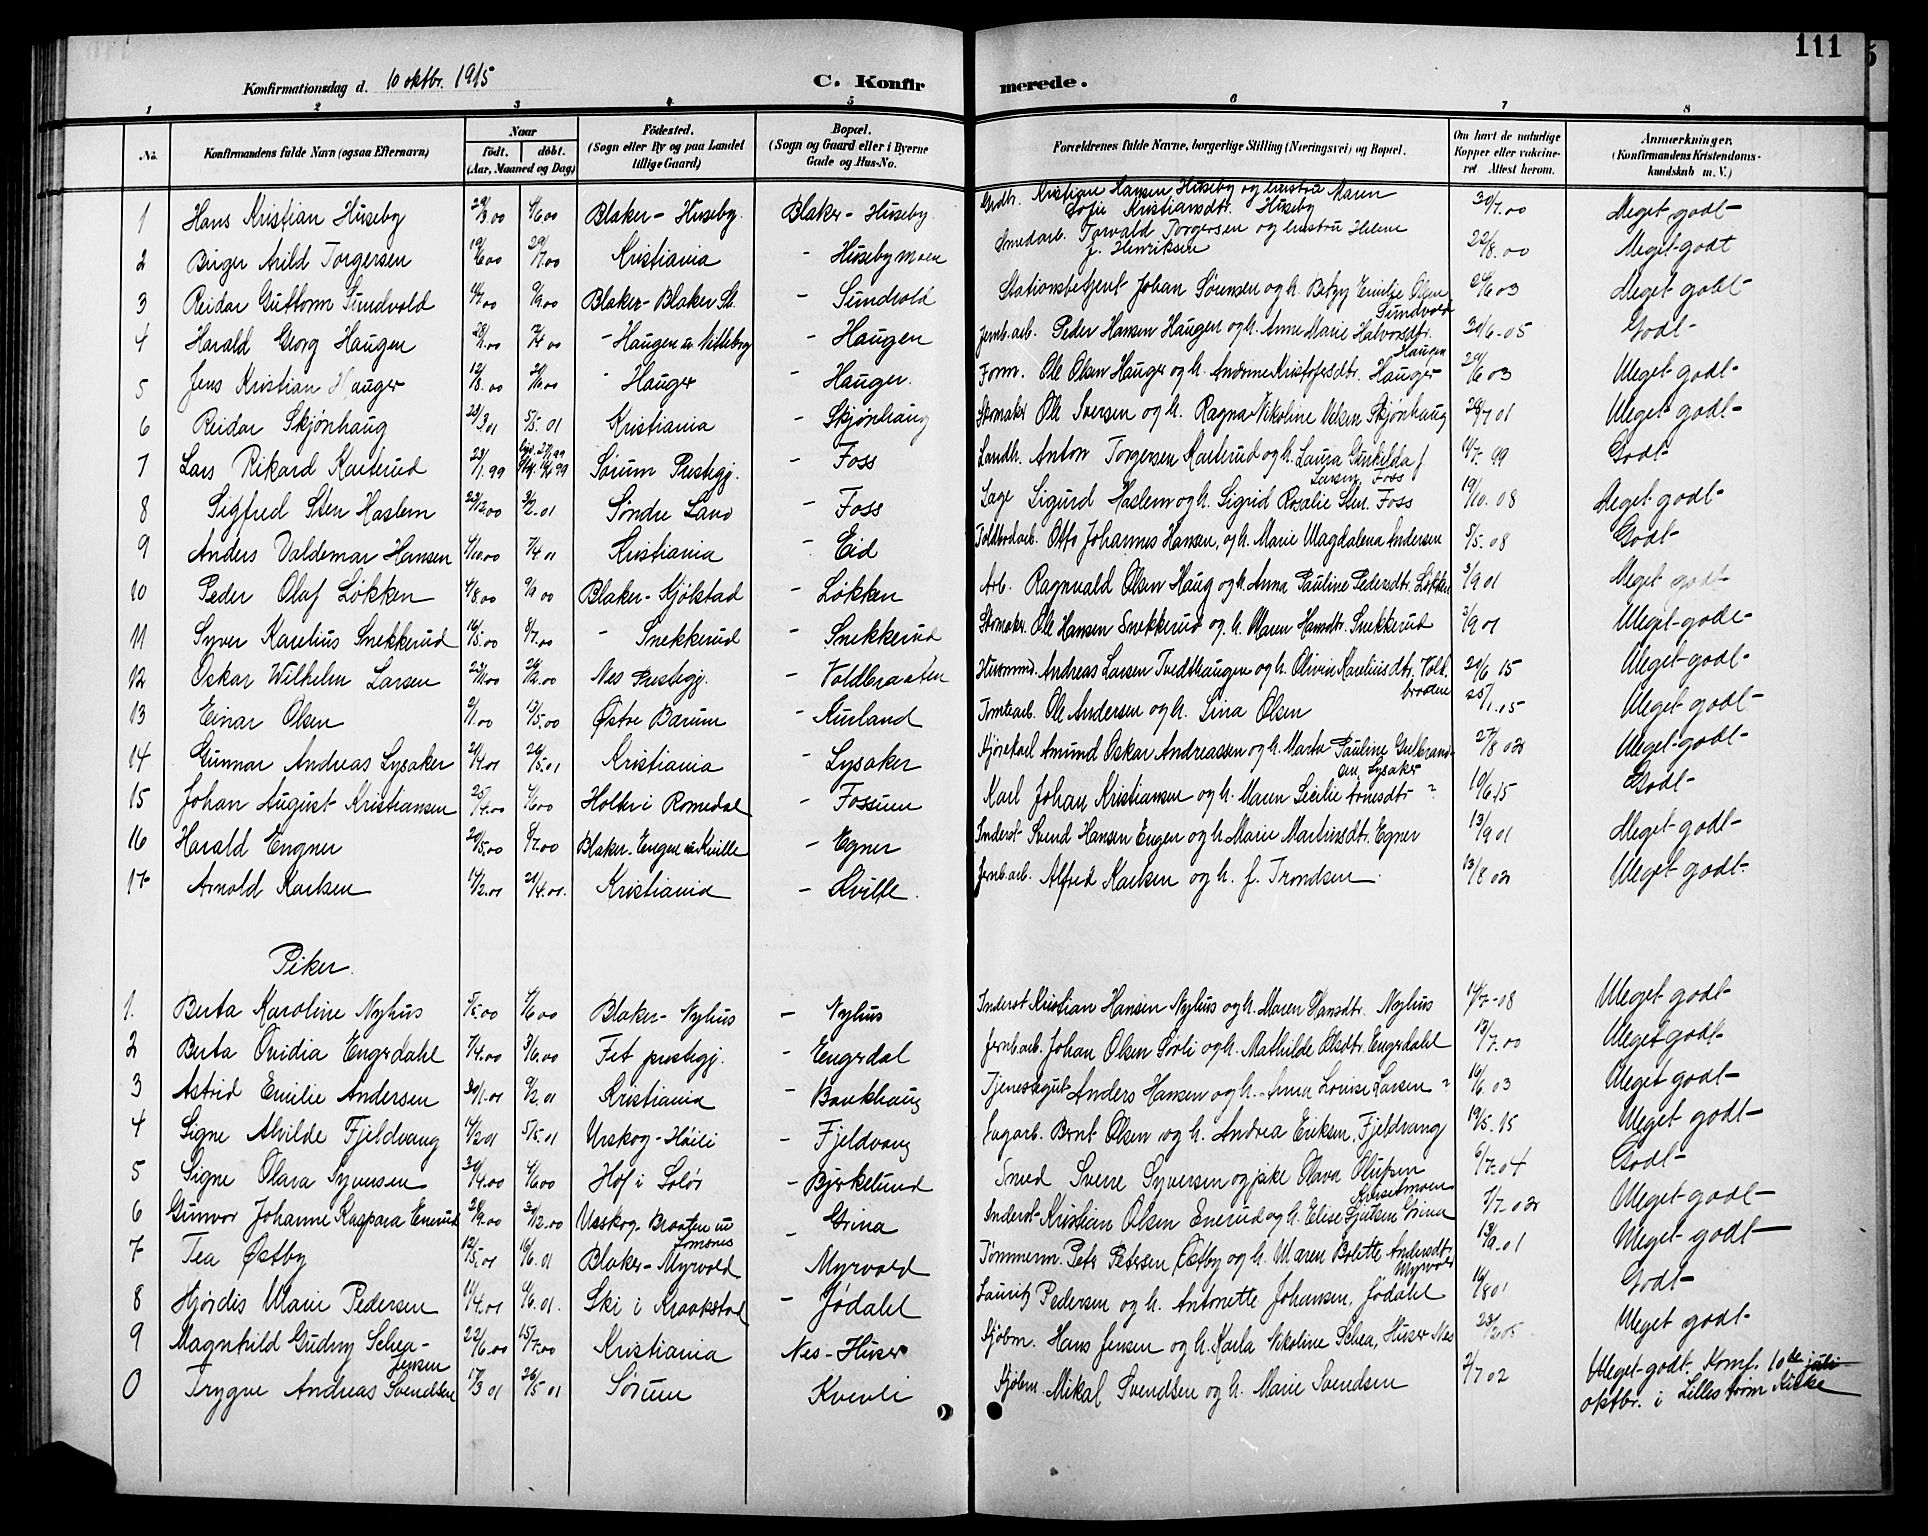 111
Konfirmationsdag d. 10 oktbr. 1915 C. Konfirmerede.
1 2 3 4 5 6 7 8
No. Konfirmandens fulde Navn (ogsaa Efternavn) Naar født. døbt. (Aar, Maaned og Dag) Fødested. (Sogn eller By og paa Landet tillige Gaard) Bopæl. (Sogn og Gaard eller i Byerne Gade og Hus-No. Forældrenes fulde Navne, borgerlige Stilling (Næringsvei) og Bopæl. Om havt de naturlige Kopper eller vakcineret Attest herom. Anmærkninger. (Konfirmandens Kristendomskundskab m. V.)
1 Hans Kristian Huseby 29/3.00 4/6 00 Blaker - Huseby. Blaker - Huseby. Grdb. Kristian Hansen Huseby og hustru Maren Sofie Kristiansdtr. Huseby 30/7.00 Meget godt
2 Birger Arild Torgersen 19/6 00 29/7.00 Kristiania - Husebymoen Smedarb. Torvald Torgersen og hustru Helene f. Henriksen 22/8.00 Meget godt
3 Reidar Guttorm Sundvold 4/7.00 9/9 00 Blaker - Blaker St. - Sundvold Stationsbetjent Johan Sørensen og h. Betzy Emilie Olsen Sundvold 26/6 03 Meget godt
4 Harald Georg Haugen 28/1.00 2/4 00 - Haugen u. Nitteberg - Haugen Jernb.arb. Peder Hansen Haugen og h. Anne Marie Halvorsdtr. Haugen 30/6-05 Godt
5 Jens Kristian Hauger 12/8.00 21/10 00 - Hauger - Hauger. Form. Ole Olsen Hauger og h. Andrine Kristofersdtr. Hauger 29/6 03 Meget godt
6 Reidar Skjønhaug 23/3 01 5/5. 01 Kristiania - Skjønhaug Skomaker Ole Iversen og h. Ragna Nikoline Nilsen Skjønhaug 29/7 01 Meget godt
7 Lars Rikard Karterud 23/1.99 Sørum Prestegj. - Foss Landh. Anton Torgersen Karterud og h. Laura Gunhilda f. Larsen Foss 11/7-99 Godt
8 Sigfred Sten Haslem 22/12 00 3/2.01 Søndre Land - Foss Sage Sigurd Haslem og h. Sigrid Rosalie Sten. Foss 19/10.08 Meget godt
9 Anders Valdemar Hansen 4/10.00 7/4.01 Kristiania - Eid Toldbodarb. Otto Johannes Hansen, og h. Marie Magdalena Andersen 5/5.08 Godt
10 Peder Olaf Løkken 4/8.00 9/9 00 Blaker - Kjølstad - Løkken Arb. Ragnvald Olsen Haug og h. Anna Pauline Pedersdtr. Løkken 3/9 01 Meget godt
11 Syver Karelius Snekkerud 16/5.00 8/7.00 - Snekkerud - Snekkerud Skomaker Ole Hansen Snekkerud og h. Maren Hansdtr. Snekkerud 3/9 01 Meget godt
12 Oskar Wilhelm Larsen 22/11 00 26/12.00 Nes Prestegj. - Voldbraaten Husmand. Andreas Larsen Tvedthaugen og h. Olivia Kauliusdtr. Voldbraaten 20/6 15 Meget godt
13 Einar Olsen 9/1.00 13/5.00 Østre Bærum - Kurland Tomtearb. Ole Andersen og h. Lina Olsen 25/1.15 Meget godt
14 Gunnar Andreas Lysaker 21/4.01 26/5.01 Kristiania - Lysaker Kjørekarl Amund Oskar Andreassen og h. Marta Pauline Gulbrandsen, Lysaker 27/8 02 Meget godt
15 Johan August Kristiansen 25/4.00 4/6 00 Holter i Romedal - Fossum Karl Johan Kristiansen og h. Maren Cecilie Arnesdtr ? 10/6.15 Godt
16 Harald Engner 20/5.00 8/7.00 Blaker. Engen u. Kville - Egner Inderst Svend Hansen Engen og h. Marie Martinsdtr. Egner 13/9 01 Meget godt
17 Arnold Karlsen 14/2.01 21/4.01. Kristiania - Kville. Jernb.arb. Alfred Karlsen og h. f. Trondsen. 13/8 02 Meget godt.
Piker.
1. Berta Karoline Nyhus 5/5.00 4/6 00 Blaker - Nyhus - Nyhus Inderst Kristian Hansen Nyhus og h. Maren Hansdtr. Nyhus 14/7-08 Meget godt
2 Berta Ovidia Engerdahl 7/4.00 3/6.00 Fet prestegj. - Engerdal Jernb.arb. Johan Olsen Sorli og h. Mathilde Olsdtr. Engerdahl 13/7.00 Meget godt
3 Astrid Emilie Andersen 30/1.01 9/2 01 Kristiania - Baukhaug Tjenestegut Anders Hansen og h. Anna Louise Larsen ? 16/6 03 Meget godt
4 Signe Alvilde Fjeldvang 14/2 01 5/5.01 Urskog - Høili - Fjeldvang Sagarb. Bernt Olsen og h. Andrea Eriksen, Fjeldvang 19/5.15 Meget godt
5 Signe Olara Syversen 30/4.00 4/6 00 Hof i Solør - Bjerkelund Smed Sverre Syversen og pike Olava Olufsen 6/7-04 Godt
6 Gunvor Johanne Kaspara Enerud 28/9.00 30/12.00 Urskog. Braaten u. Lomsnes - Grina Inderst Kristian Olsen Enerud og h. Elise Grina 7/7-02 Meget godt
7 Tea Østby 12/5.01 16/6.01 Blaker - Myrvold - Myrvold Tømmerm. Peter Petersen Østby og h. Maren Bolette Andersdtr. Myrvold 13/9.01 Meget godt
8 Hjørdis Marie Pedersen 11/4.01 9/6.01. Ski i Kraakstad - Jødahl Lauritz Pedersen og h. Antonette Johansen, Jødahl 16/8 01 Godt
9 Magnhild Gudny Schea-Jensen 22/6.00 15/7.00 Kristiania Nes - Huser Kjøbm. Hans Jensen og h. Karla Nikoline Schea, Huser Nes 23/2 05 Meget godt.
0 Trygve Andreas Svendsen 17/3 01 26/5 01 Sørum Kvevli Kjøbm. Mikal Svendsen og h. Marie Svendsen 2/7 02 Meget godt. Konf. 10de juli oktbr. i Lillestrøm Kirke